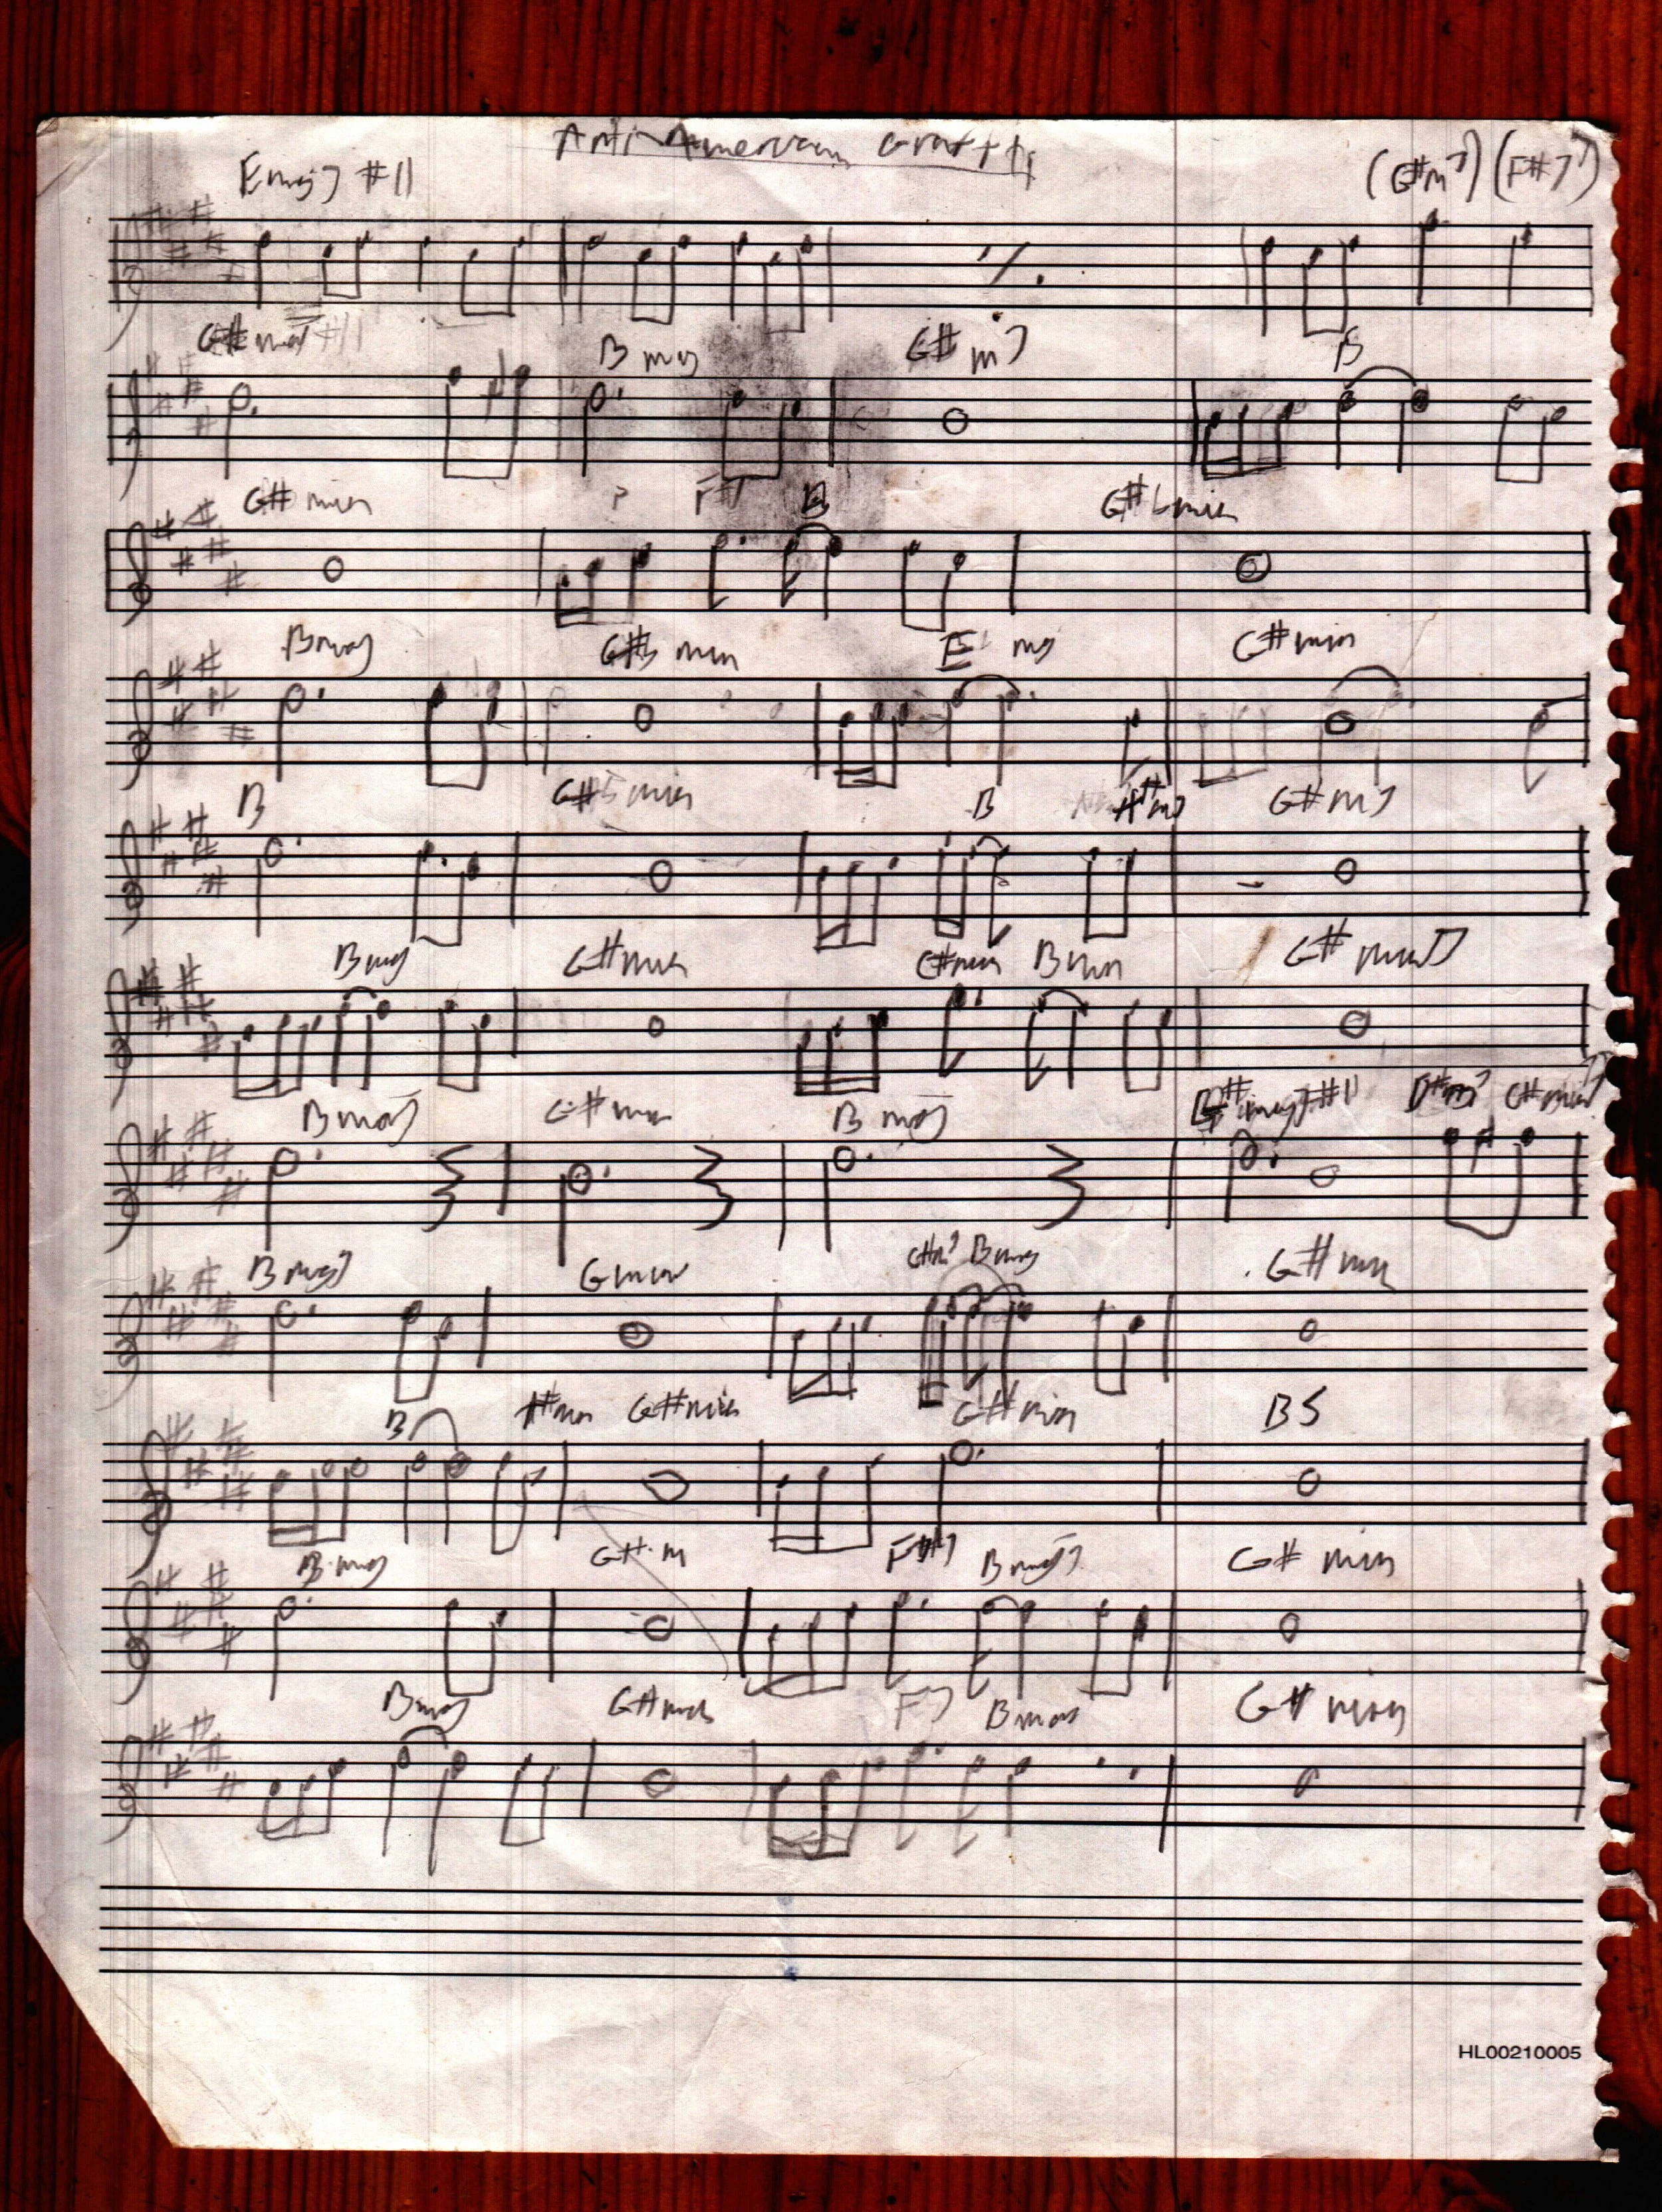 Anti-American Graffiti
Emaj7 #11 (G#m7) (F#7)
G# B maj G# m7 B
G# min F#7 B G# min
Bmaj G# min E maj G#min
B G# min B A#m7 G#m7
Bmaj G#min G#min B G# min7
Bmaj G#min B maj maj7#11 D#m7 C#min7
B maj7 Gmin Bmaj G#min
B A#min G#min G#min B5
B maj G# m F#7 Bmaj7 G# min
Bmaj G#min F7 Bmaj G# min
HL00210005